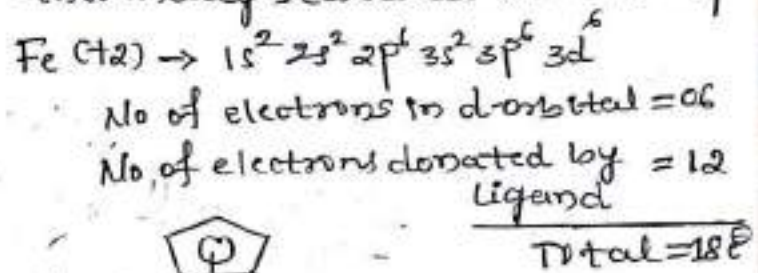 Fe (+2) → 1s² 2s² 2p⁶ 3s² 3p⁶ 3d⁶
No of electrons in d-orbital = 06
No, of electrons donated by = 12
Ligand
Total = 18ē